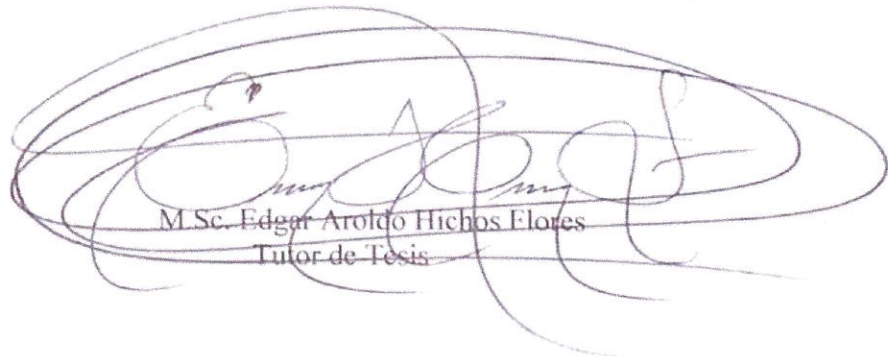 M.Sc. Edgar Aroldo Hichos Flores
Tutor de Tesis